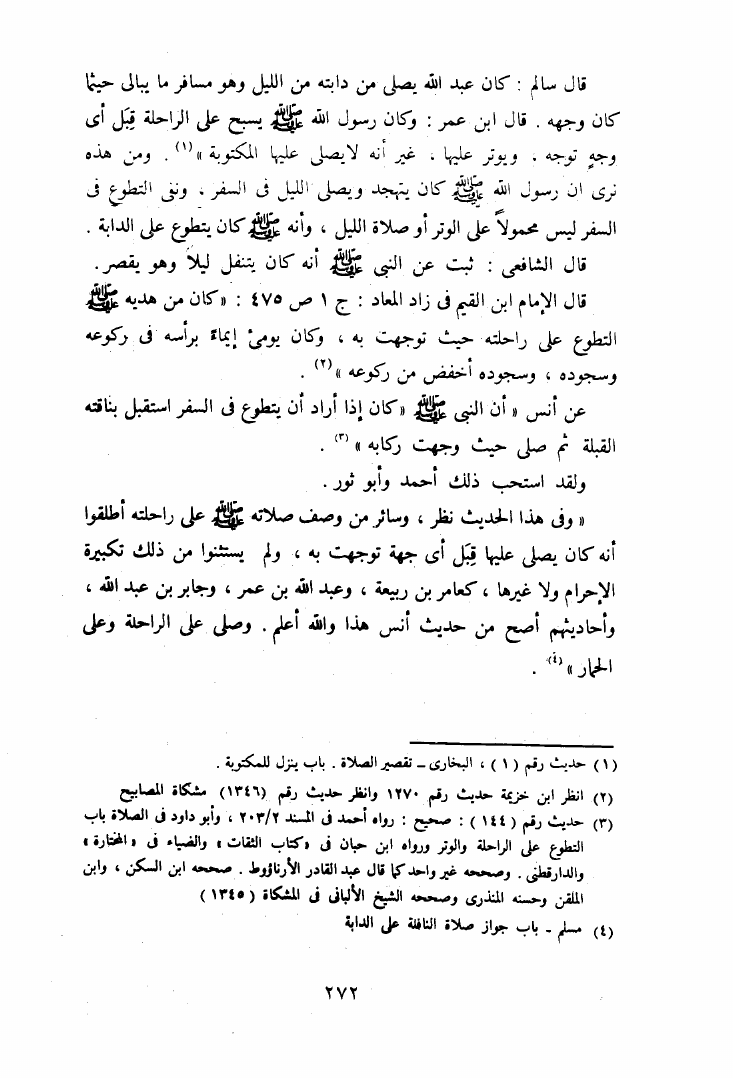 قال سالم : كان عبد الله يصلى من دابته من الليل وهو مسافر ما يبالى حيثما
كان وجهه . قال ابن عمر : وكان رسول الله ﷺ يسبح على الراحلة قِبَل أى
وجهٍ توجه ، ويوتر عليها ، غير أنه لايصلى عليها المكتوبة »(١) . ومن هذه
نرى ان رسول الله ﷺ كان يتهجد ويصلى الليل فى السفر ، ونفى التطوع فى
السفر ليس محمولاً على الوتر أو صلاة الليل ، وأنه ﷺ كان يتطوع على الدابة .
قال الشافعى : ثبت عن النبى ﷺ أنه كان يتنفل ليلاً وهو يقصر .
قال الإمام ابن القيم فى زاد المعاد : ج ١ ص ٤٧٥ : «كان من هديه ﷺ
التطوع على راحلته حيث توجهت به ، وكان يومئ إيماءً برأسه فى ركوعه
وسجوده ، وسجوده أخفض من ركوعه »(٢) .
عن أنس « أن النبى ﷺ «كان إذا أراد أن يتطوع فى السفر استقبل بناقته
القبلة ثم صلى حيث وجهت ركابه »(٣) .
ولقد استحب ذلك أحمد وأبو ثور .
« وفى هذا الحديث نظر ، وسائر من وصف صلاته ﷺ على راحلته أطلقوا
أنه كان يصلى عليها قِبَل أى جهة توجهت به ، ولم يستثنوا من ذلك تكبيرة
الإحرام ولا غيرها ، كعامر بن ربيعة ، وعبد الله بن عمر ، وجابر بن عبد الله ،
وأحاديثهم أصح من حديث أنس هذا والله أعلم . وصلى على الراحلة وعلى
الحمار »(٤) .
(١) حديث رقم (١) ، البخارى ـ تقصير الصلاة . باب ينزل للمكتوبة .
(٢) انظر ابن خزيمة حديث رقم ١٢٧٠ وانظر حديث رقم (١٣٤٦) مشكاة المصابيح
(٣) حديث رقم (١٤٤) : صحيح : رواه أحمد فى المسند ٢٠٣/٢ ، وأبو داود فى الصلاة باب
التطوع على الراحلة والوتر ورواه ابن حبان فى «كتاب الثقات » والضياء فى « المختارة »
والدارقطنى . وصححه غير واحد كما قال عبد القادر الأرناؤوط . صححه ابن السكن ، وابن
الملقن وحسنه المنذرى وصححه الشيخ الألبانى فى المشكاة (١٣٤٥)
(٤) مسلم - باب جواز صلاة النافلة على الدابة
٢٧٢